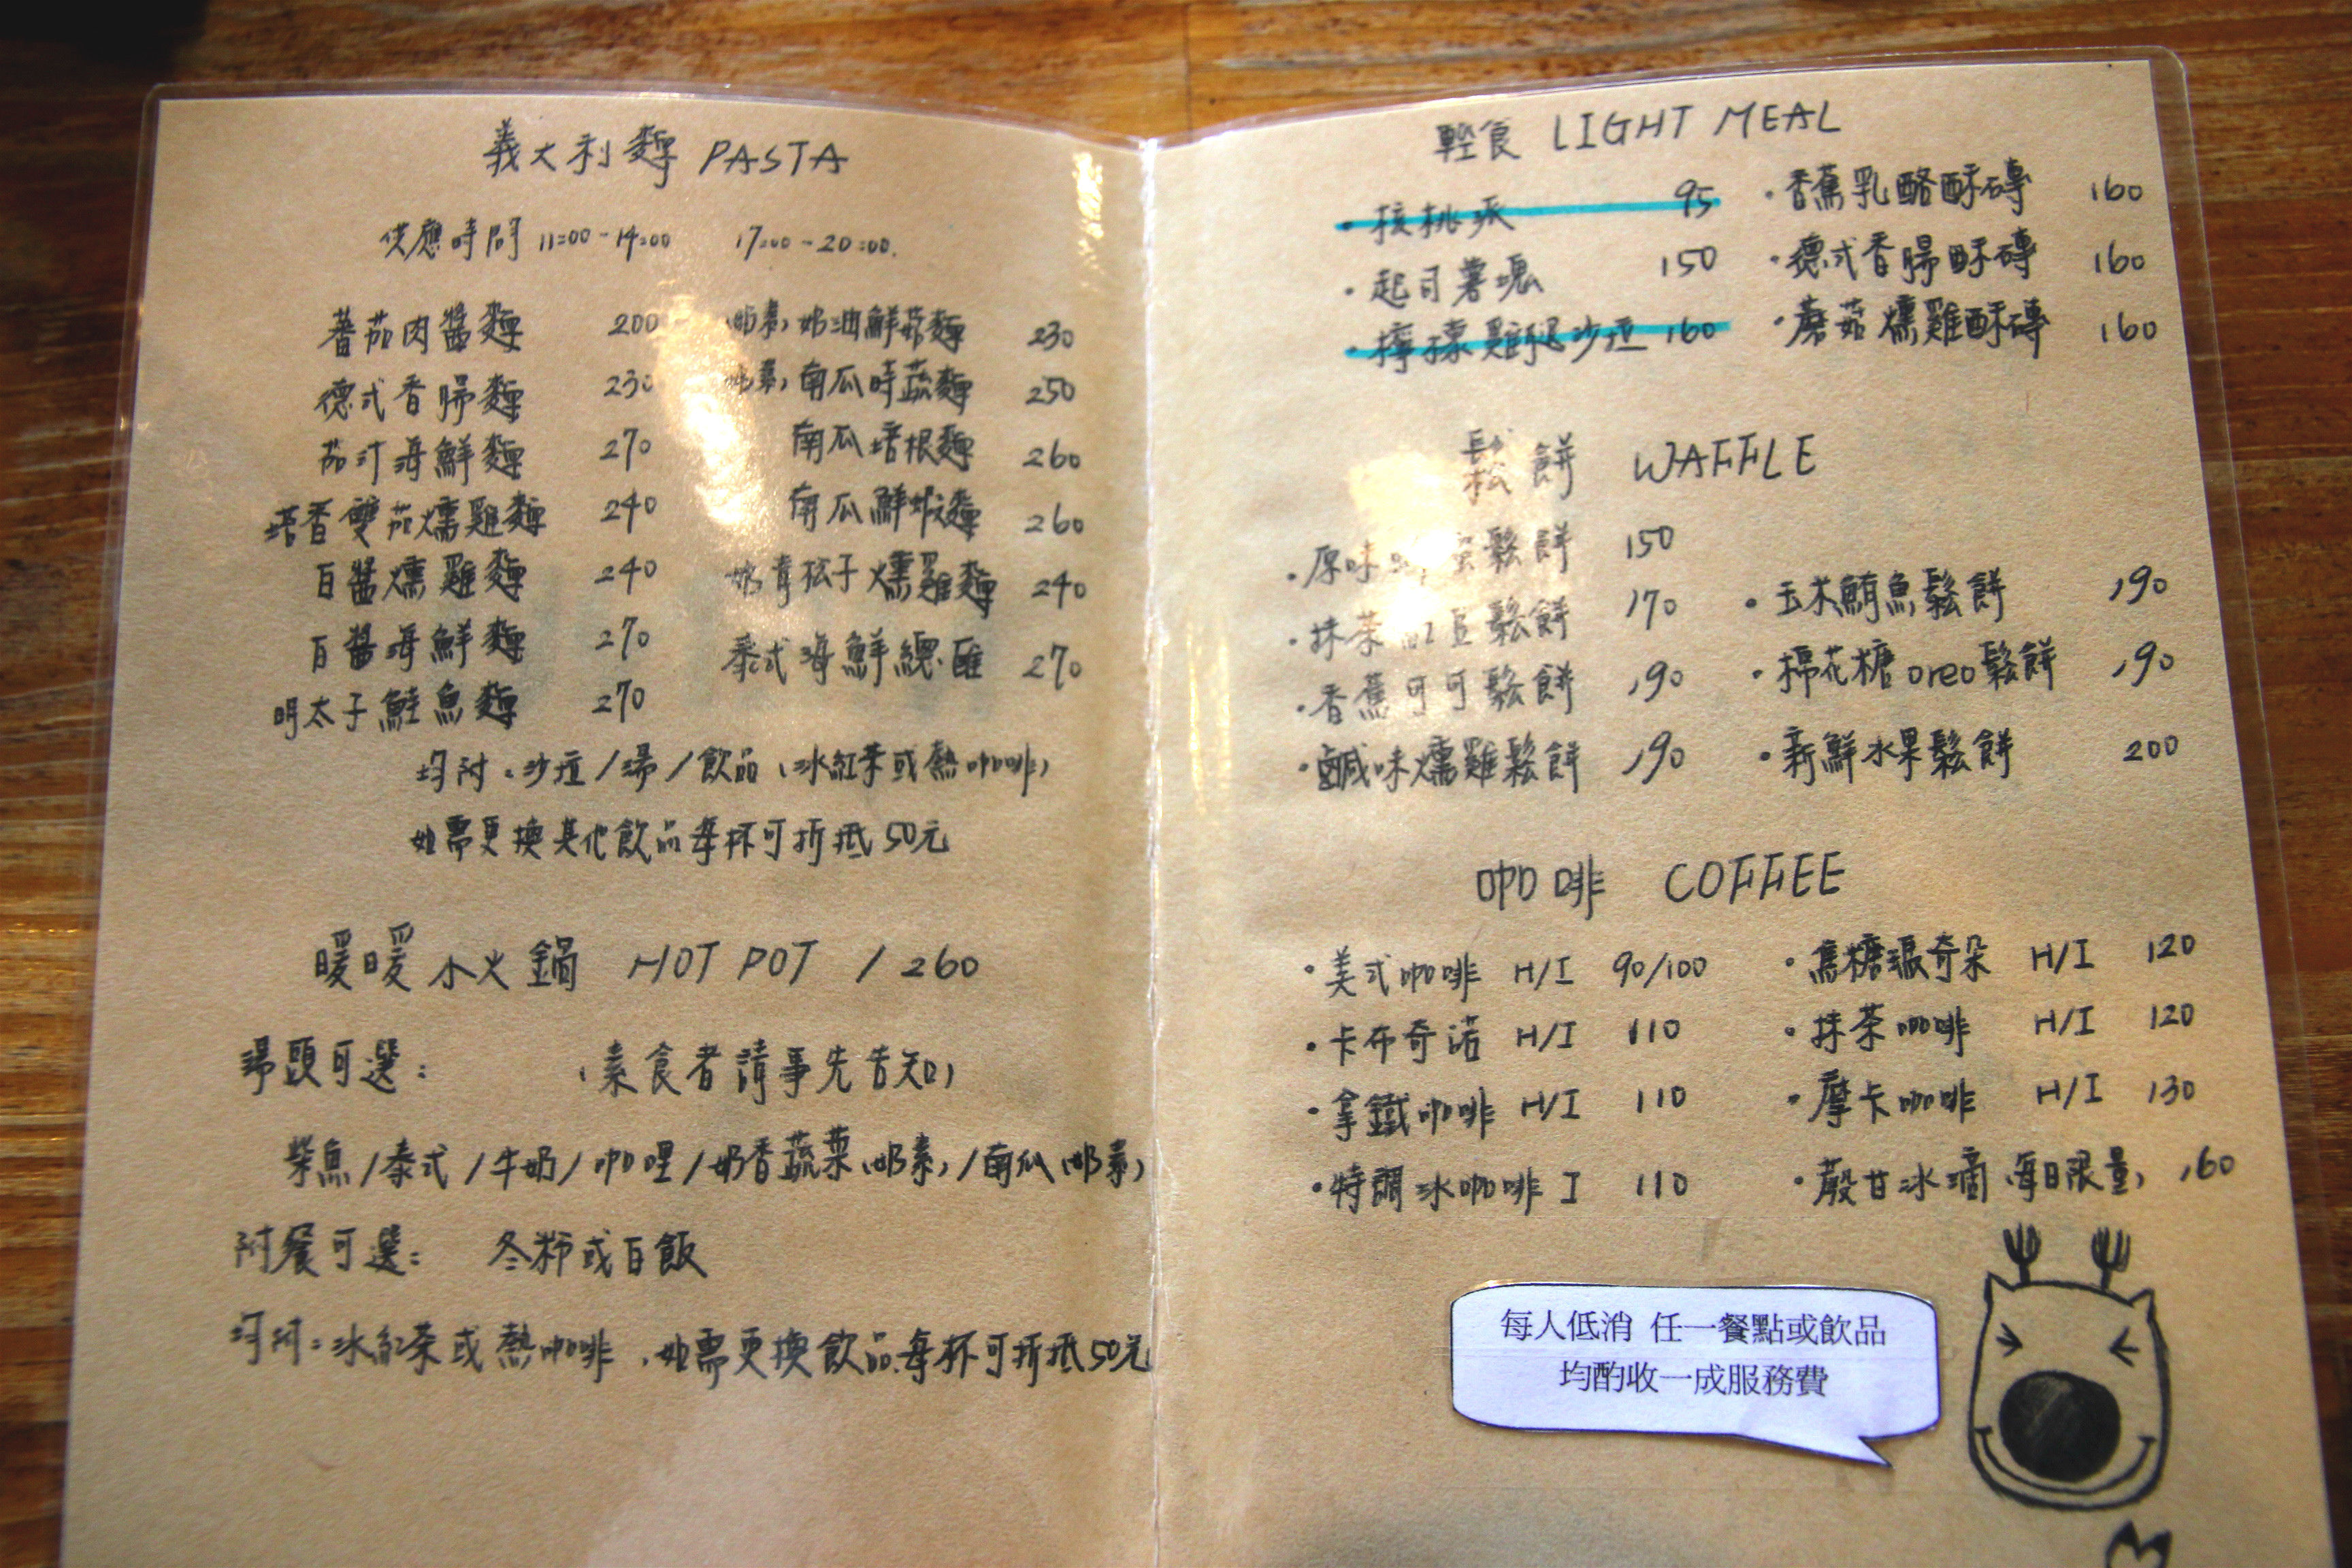 義大利麵 PASTA
供應時間 11:00-14:00 17:00-20:00.
蕃茄肉醬麵 200
德式香腸麵 230
茄汁海鮮麵 270
塔香雙茄燻雞麵 240
白醬燻雞麵 240
白醬海鮮麵 270
明太子鮭魚麵 270
(奶素) 奶油鮮菇麵 230
(奶素) 南瓜時蔬麵 250
南瓜培根麵 260
南瓜鮮蝦麵 260
奶青松子燻雞麵 240
泰式海鮮總匯 270
均附:沙拉/湯/飲品(冰紅茶或熱咖啡)
如需更換其他飲品每杯可折抵50元
暖暖小火鍋 HOT POT / 260
湯頭可選: (素食者請事先告知)
柴魚/泰式/牛奶/咖哩/奶香蔬菜(奶素)/南瓜(奶素)
附餐可選: 冬粉或白飯
均附:冰紅茶或熱咖啡,如需更換飲品每杯可折抵50元
輕食 LIGHT MEAL
·核桃派 95
·起司薯塊 150
·檸檬雞腿沙拉 160
·香蕉乳酪酥磚 160
·德式香腸酥磚 160
·蘑菇燻雞酥磚 160
鬆餅 WAFFLE
·原味 鬆餅 150
·抹茶紅豆鬆餅 170
·香蕉可可鬆餅 190
·鹹味燻雞鬆餅 190
·玉米鮪魚鬆餅 190
·棉花糖oreo鬆餅 190
·新鮮水果鬆餅 200
咖啡 COFFEE
·美式咖啡 H/I 90/100
·卡布奇諾 H/I 110
·拿鐵咖啡 H/I 110
·特調冰咖啡 I 110
·焦糖瑪奇朵 H/I 120
·抹茶咖啡 H/I 120
·摩卡咖啡 H/I 130
·嚴甘冰滴(每日限量) 160
每人低消 任一餐點或飲品
均酌收一成服務費